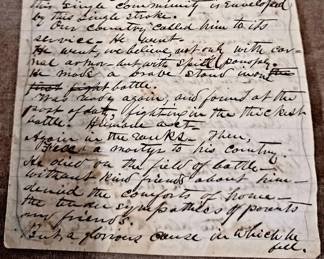 this single community is enveloped
by this single stroke.
Our Country called him to its
service. He went.
He went, we believe, not only with car-
nal armor but with spirit panoply.
He made a brave stand
first fight battle.
Was ready again, and found at the
post of duty fighting in the thickest
battle!
Again in the ranks. Then,
a martyr to his country.
He died on the field of battle
without kind friends about him
denied the comforts of home
the tender sympathies of parents
my friends.
But a glorious cause in which he
fell.